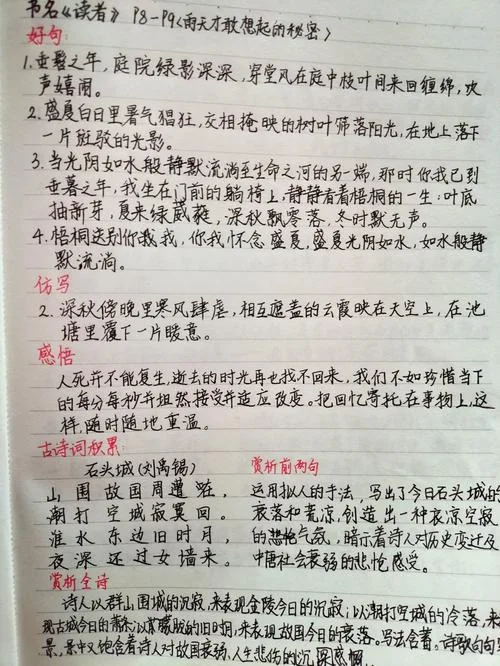 书名《读者》 P8-P9<雨天才敢想起的秘密>
好句:
1.垂暮之年,庭院绿影深深,穿堂风在庭中枝叶间来回缠绵,欢
声嬉闹。
2.盛夏白日里暑气猖狂,交相掩映的树叶筛落阳光,在地上落下
一片斑驳的光影。
3.当光阴如水般静默流淌至生命之河的另一端,那时你我已到
垂暮之年,我坐在门前的躺椅上,静静看着梧桐的一生:叶底
抽新芽,夏来绿葳蕤,深秋飘零落,冬时默无声。
4.梧桐送别你我,你我怀念盛夏,盛夏光阴如水,如水般静
默流淌。
仿写
2.深秋傍晚里寒风肆虐,相互遮盖的云霞映在天空上,在池
塘里覆下一片暖意。
感悟
人死并不能复生,逝去的时光再也找不回来,我们不如珍惜当下
的每分每秒并坦然接受并适应改变。把回忆寄托在事物上,这
样,随时随地重温。
古诗词积累:
石头城(刘禹锡)
山围故国周遭在,
潮打空城寂寞回。
淮水东边旧时月,
夜深还过女墙来。
赏析前两句
运用拟人的手法,写出了今日石头城的
衰落和荒凉,创造出一种哀凉空寂
的悲怆气氛,暗示着诗人对历史变迁及
中唐社会衰弱的悲怆感受。
赏析全诗
诗人以群山围城的沉寂,来表现金陵今日的沉寂;以潮打空城的冷落,来
现古城今日的萧条;以朦胧的旧时月,来表现故国今日的衰落。写法含蓄。诗歌句句
景,景中又饱含着诗人对故国衰弱,人生悲伤的沉深感慨。